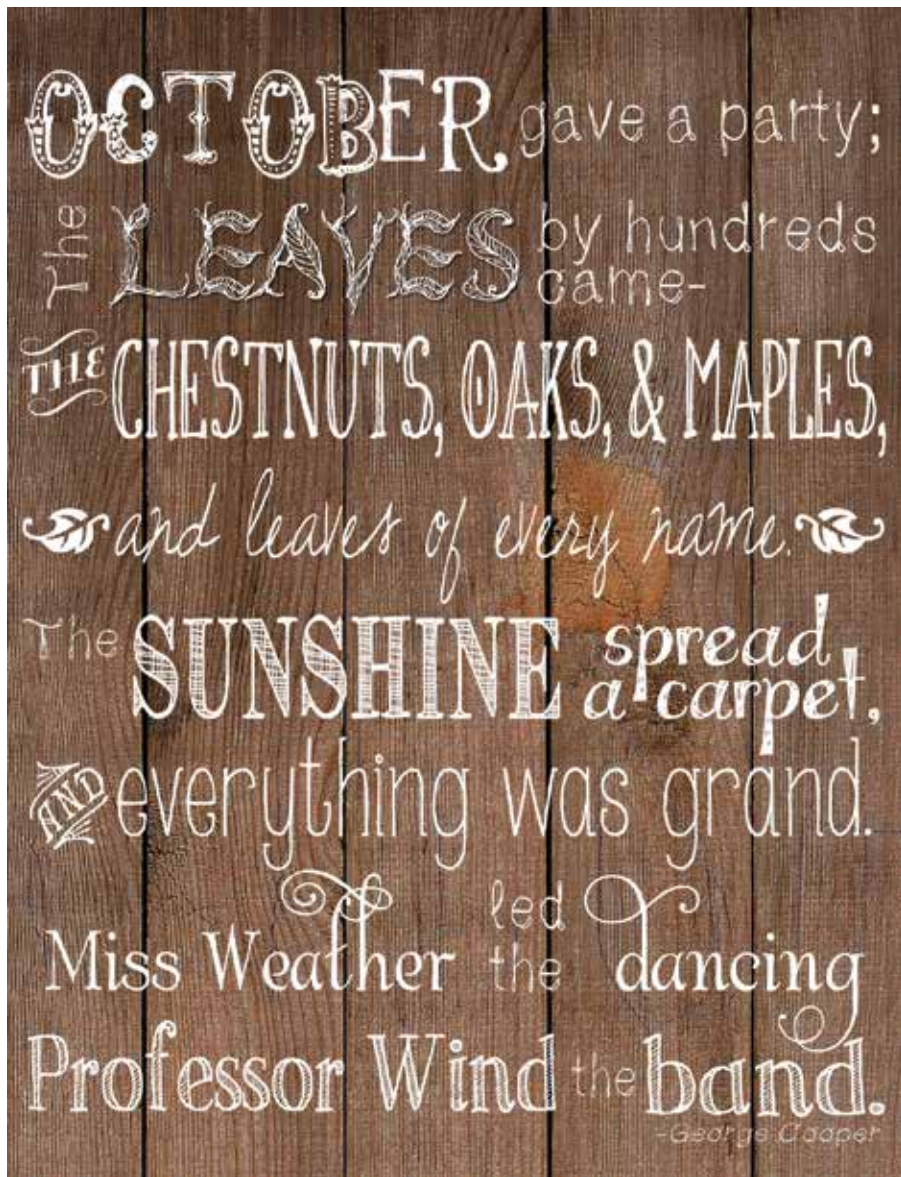 OCTOBER gave a party;
The LEAVES by hundreds
came-
THE CHESTNUTS, OAKS, & MAPLES,
and leaves of every name.
The SUNSHINE spread
a carpet,
AND everything was grand.
Miss Weather led the dancing
Professor Wind the band.
-George Cooper